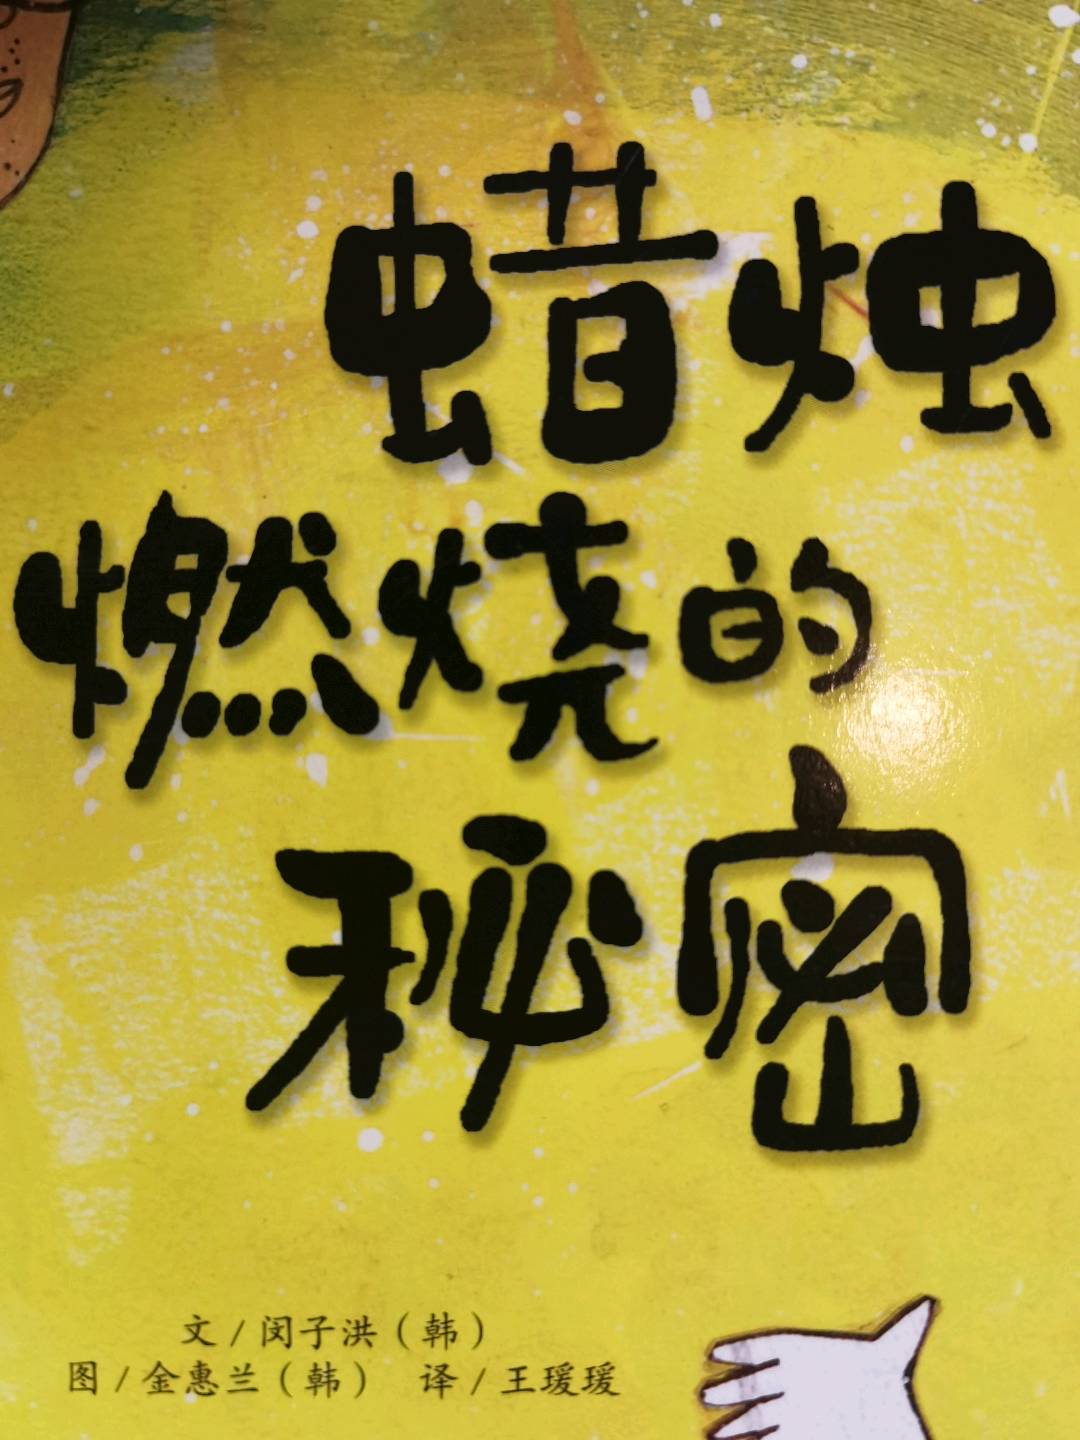 蜡烛
燃烧的
秘密
文/闵子洪（韩）
图/金惠兰（韩） 译/王瑗瑗